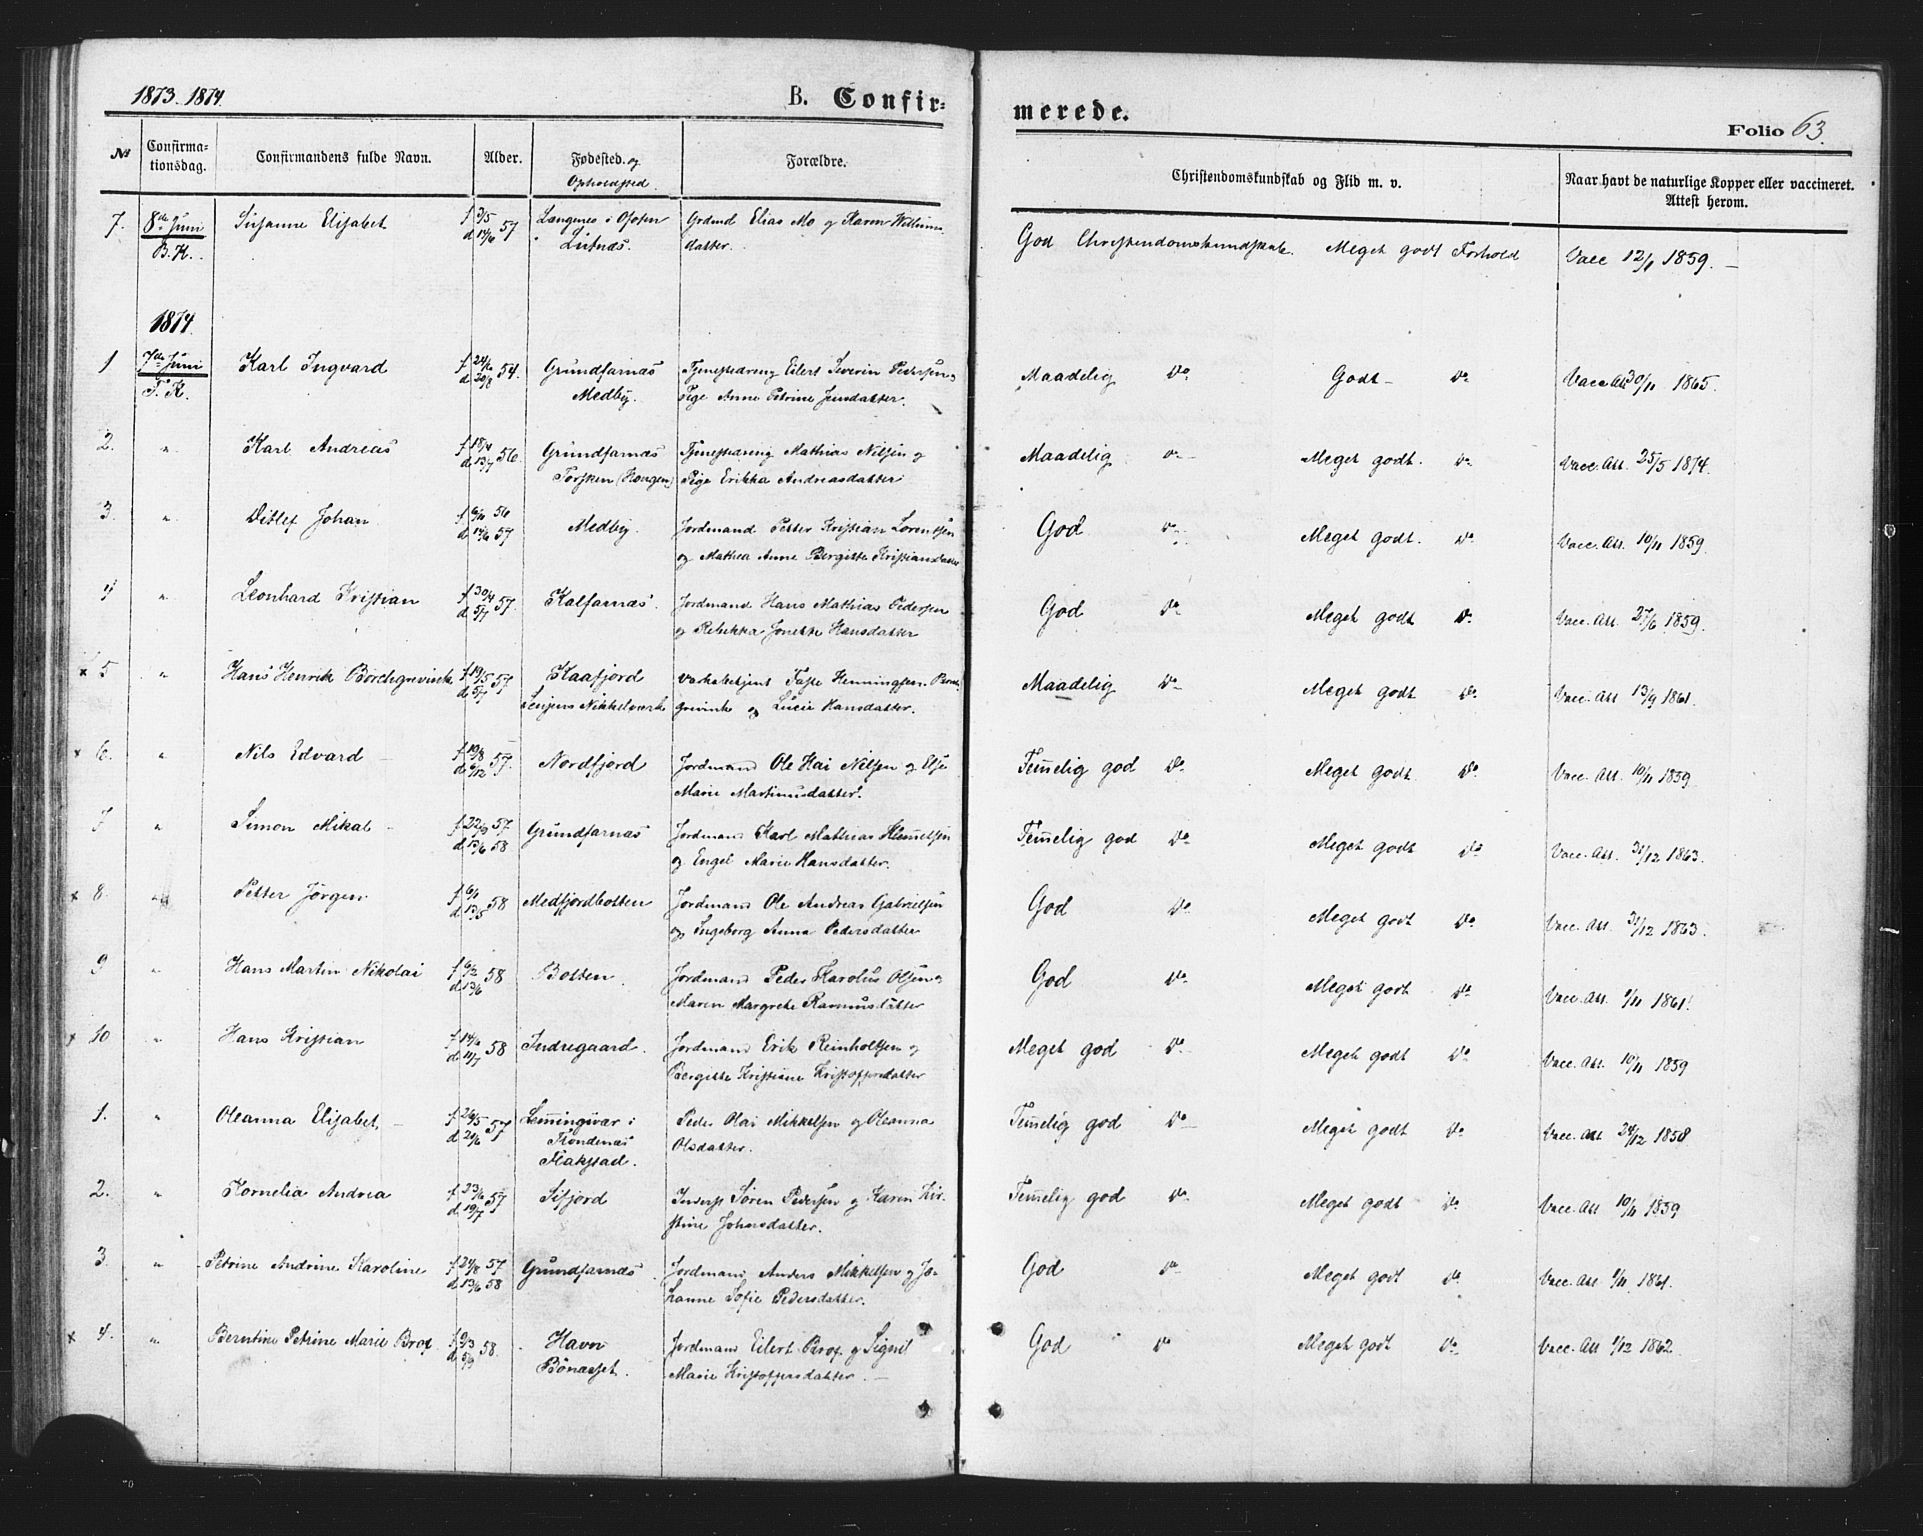 1873. 1874.
B. Confir-
merede.
Folio 63.
№
Confirma-
tionsdag.
Confirmandens fulde Navn.
Alder.
Fødested. og
Opholdssted.
Forældre.
Christendomskundskab og Flid m. v.
Naar havt de naturlige Kopper eller vaccineret.
Attest herom.
7. 8de Juni Susanne Elisabet f 3/5 57 Langenes i Ofoten Grdmd Elias Mo og Karen Willums-
B.K. d 14/6 Lufnæs. datter.
God Christendomskundskab. Meget godt Forhold Vacc 12/11 1859. –
1874.
1 7de Juni Karl Ingvard f 24/6 54. Grundfarnæs Tjenestedreng Eilert Severin Pedersen og
T. K. d 20/8 Medby. Pige Anne Petrine Jensdatter.
Maadelig do Godt – do Vacc Att 30/11 1865.
2. " Karl Andreas f 18/4 56. Grundfarnæs Tjenestedreng Mathias Nilsen og
d 13/7 Torsken (Kongen) Pige Erikka Andreasdatter
Maadelig do Meget godt. do Vacc. Att. 25/5 1874.
3. " Ditlef Johan f 6/11 56 Medby. Jordmand Petter Kristian Lorentsen
d 14/6 57 og Mathea Anne Bergitte Kristiansdatter
God do Meget godt. do Vacc. Att. 10/11 1859.
4 " Leonhard Kristian f 30/4 57. Kalfarnæs. Jordmand Hans Mathias Pedersen
d 5/7 og Rebekka Jonette Hansdatter
God do Meget godt do Vacc. Att. 27/6 1859.
x 5 " Hans Henrik Borchgrevink f 19/5 57 Kaafjord Taste Henningsen Borch-
d 5/7 Senjens Nikkelverk grevink og Lucie Hansdatter.
Maadelig do Meget godt do Vacc. Att 13/9 1861.
x 6. " Nils Edvard – f 19/8 57. Nordfjord Jordmand Ole Hai Nilsen og Else
d 6/12 Marie Martinusdatter.
Temelig god do Meget godt do Vacc. Att. 10/11 1859.
7 " Simon Mikal – f 22/9 57 Grundfarnæs Jordmand Karl Mathias Klemetsen
d 13/6 58 og Engel Marie Hansdatter.
Temelig god do Meget godt do Vacc. Att. 31/12 1863.
x 8. " Petter Jørgen f 6/1 58 Medfjordbotten Jordmand Ole Andreas Gabrielsen
d 13/5 og Ingeborg Anna Pedersdatter
God do Meget godt do Vacc. Att. 31/12 1863.
9 " Hans Martin Nikolai f 6/2 58 Botten. Jordmand Peder Karolus Olsen og
d 13/6 Maren Margrete Rasmusdatter
God do Meget godt do Vacc. Att. 1/11 1861.
x 10 " Hans Kristian f 14/6 58 Indregaard. Jordmand Erik Reinholtsen og
d 11/7 Bergitte Kristiane Kristoffersdatter
Meget god do Meget godt do Vacc. Att. 10/11 1859
1. " Oleanna Elisabet, – f 26/5 57 Lemmingsvær i Peder Olai Mikkelsen og Oleanna
d 21/6 Trondenæs Olsdatter.
Flakstad.
Temelig god do Meget godt do Vacc. Att 24/12 1858
2. " Kornelia Andrea f 23/6 57 Sifjord Inderst Søren Pedersen og Karen Kir-
d 19/7 stine Johansdatter.
Temelig god do Meget godt do Vacc. Att 10/11 1859
3. " Petrine Andrine Karoline f 24/8 57 Grundfarnæs. Jordmand Anders Mikkelsen og Jo-
d 13/6 58 hanne Sofie Pedersdatter.
God do Meget godt do Vacc. Att 1/11 1861.
x 4. " Berntine Petrine Marie Brox f 9/3 58. Havn Jordmand Eilert Brox og Sigvil
d 5/9 Bönaaset. Marie Kristoffersdatter. –
God do Meget godt do Vacc. Att 1/12 1862.